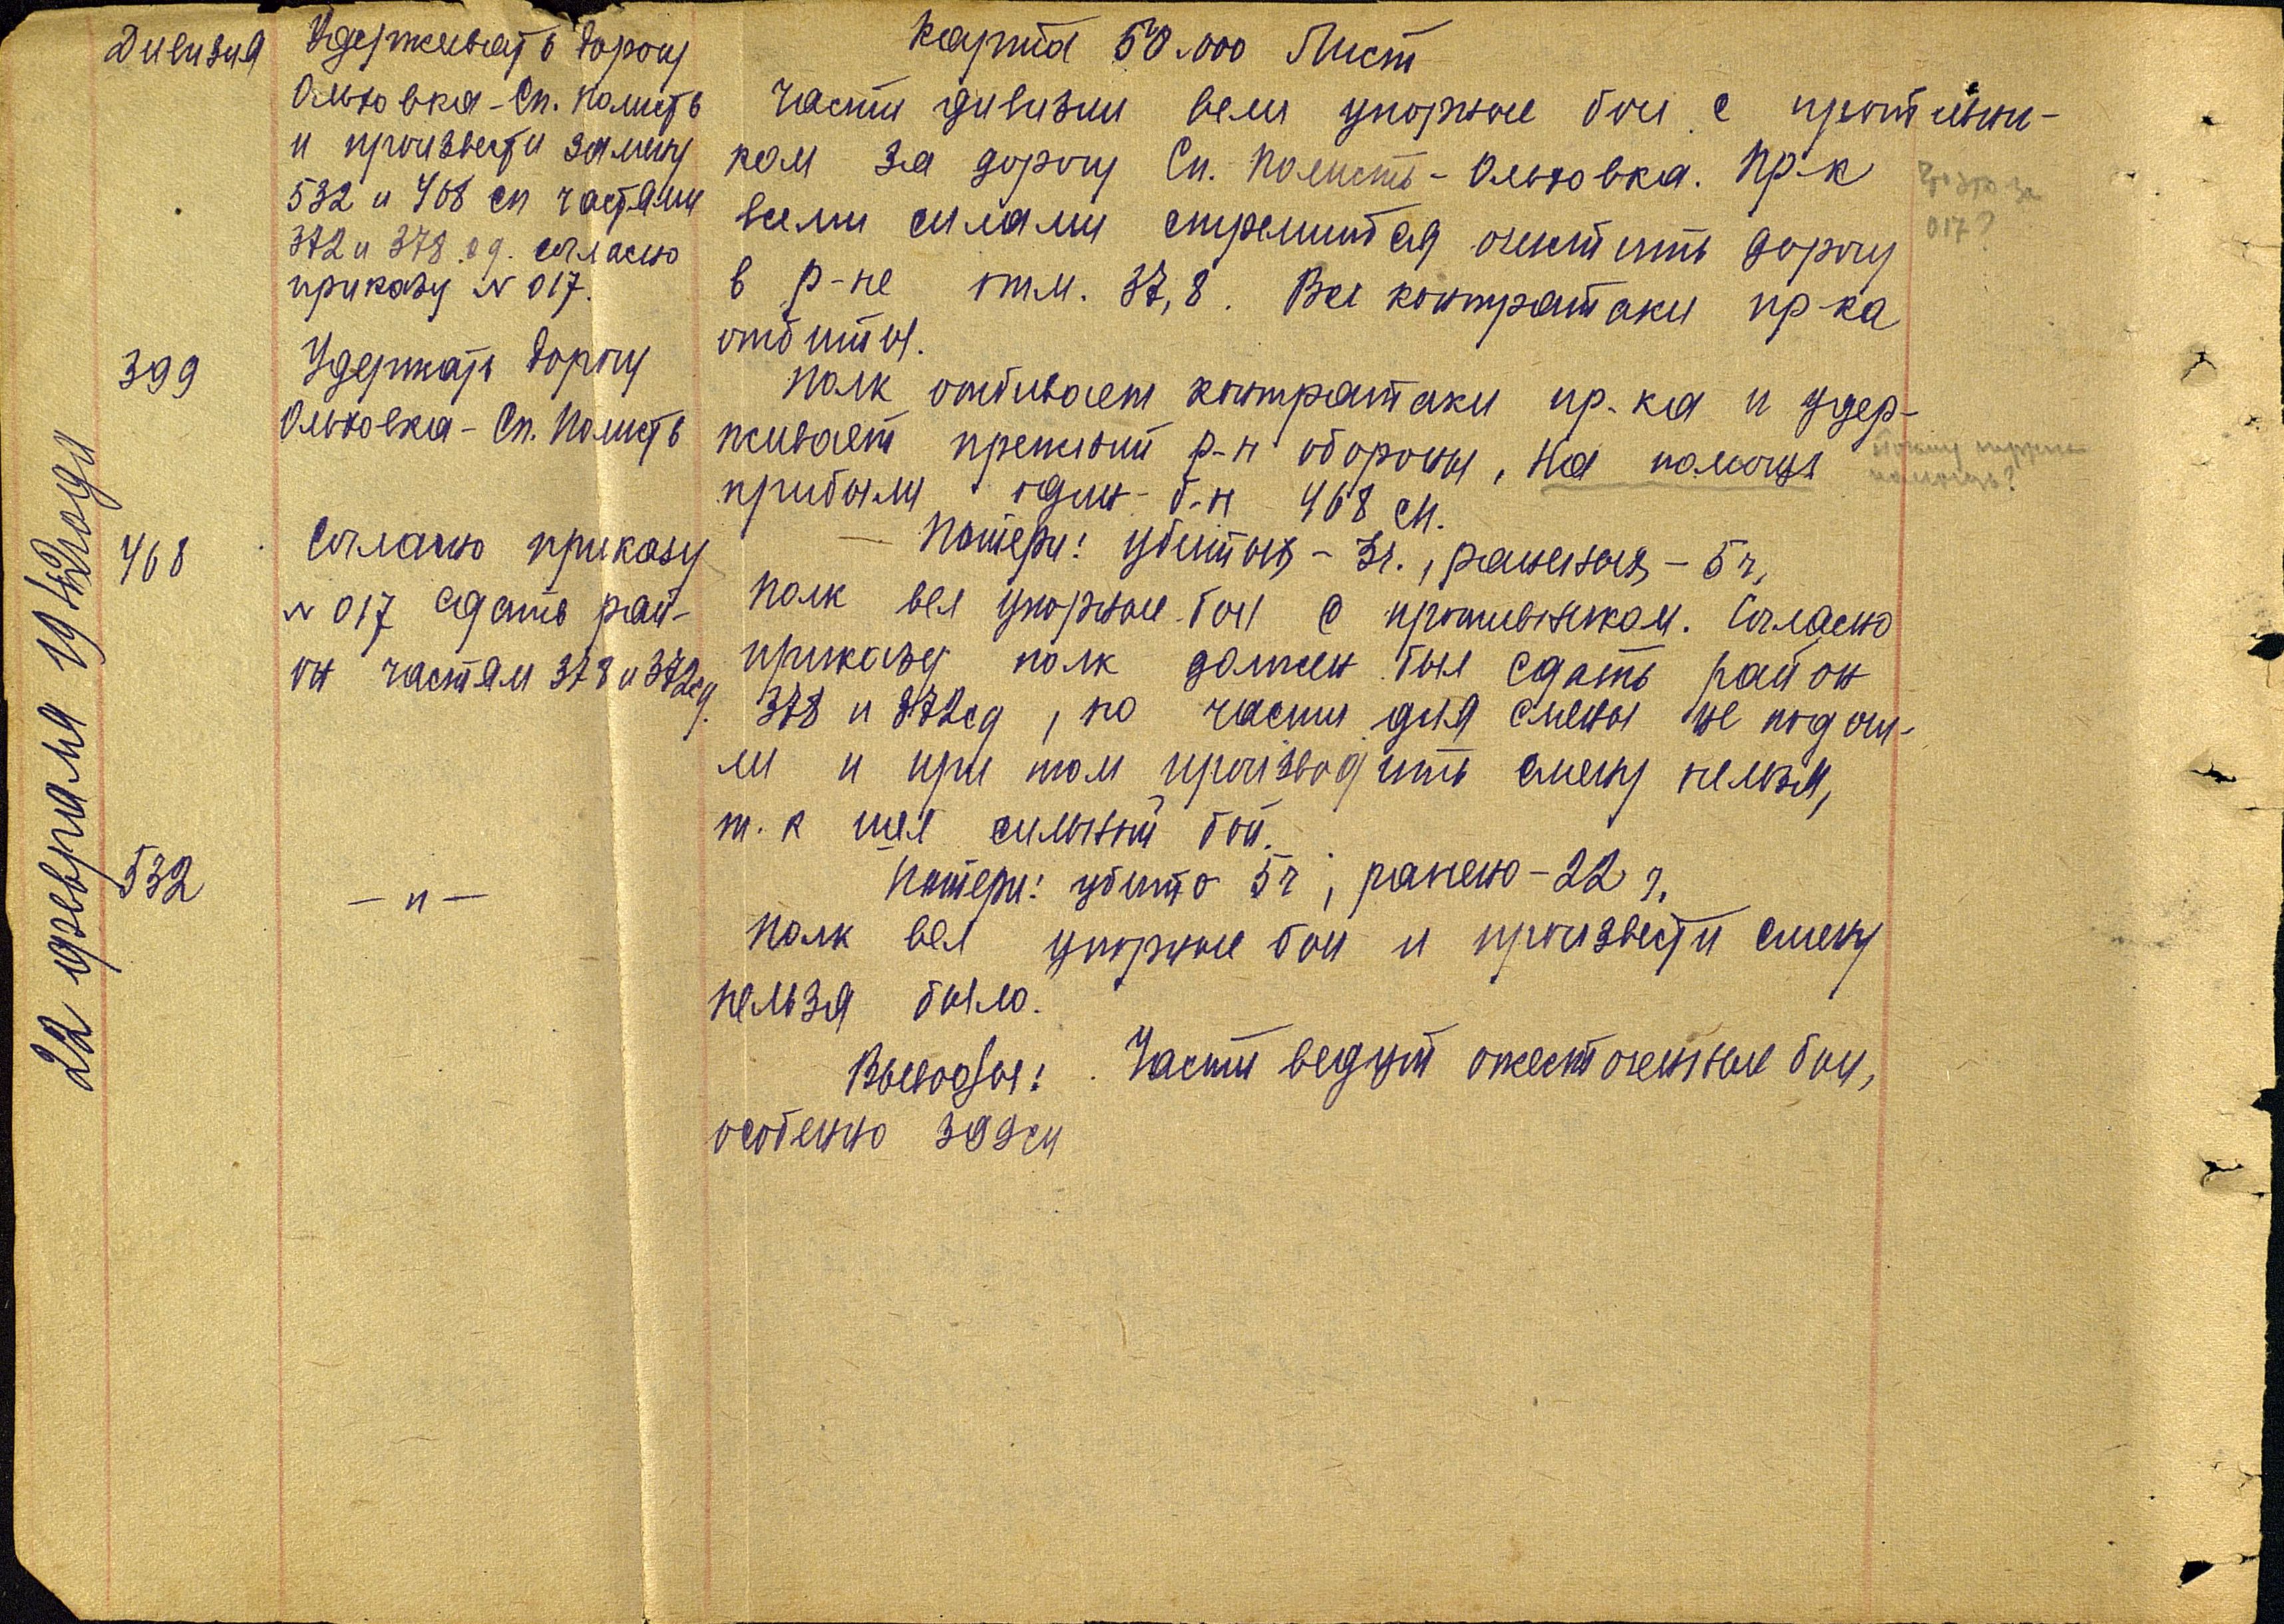 22 февраля 1942 года
Дивизия
Удерживать дорогу
Ольховка - Сп. Полисть
и произвести замену
532 и 468 сп частями
372 и 378 сд. согласно
приказу № 017.
Карта 50.000 Лист
Части дивизии вели упорные бои с противни-
ком за дорогу Сп. Полисть - Ольховка. Пр-к
всеми силами стремится очистить дорогу
в р-не отм. 37,8. Все контратаки пр-ка
отбиты.
017?
399
Удержать дорогу
Ольховка - Сп. Полисть
Полк отбивает контратаки пр-ка и удер-
живает прежний р-н обороны, на помощь
прибыли один б-н 468 сп.
Потери: убитых - 3ч., раненых - 5ч.
помощь?
468
Согласно приказу
№ 017 сдать рай-
он частям 378 и 372сд.
Полк вел упорные бои с противником. Согласно
приказу полк должен был сдать район
378 и 372сд, но части для смены не подош-
ли и при том производить смену нельзя,
т.к шел сильный бой.
Потери: убито 5ч, ранено - 22 ч.
532
— " —
Полк вел упорные бои и произвести смену
нельзя было.
Выводы: Части ведут ожесточенные бои,
особенно 399сп